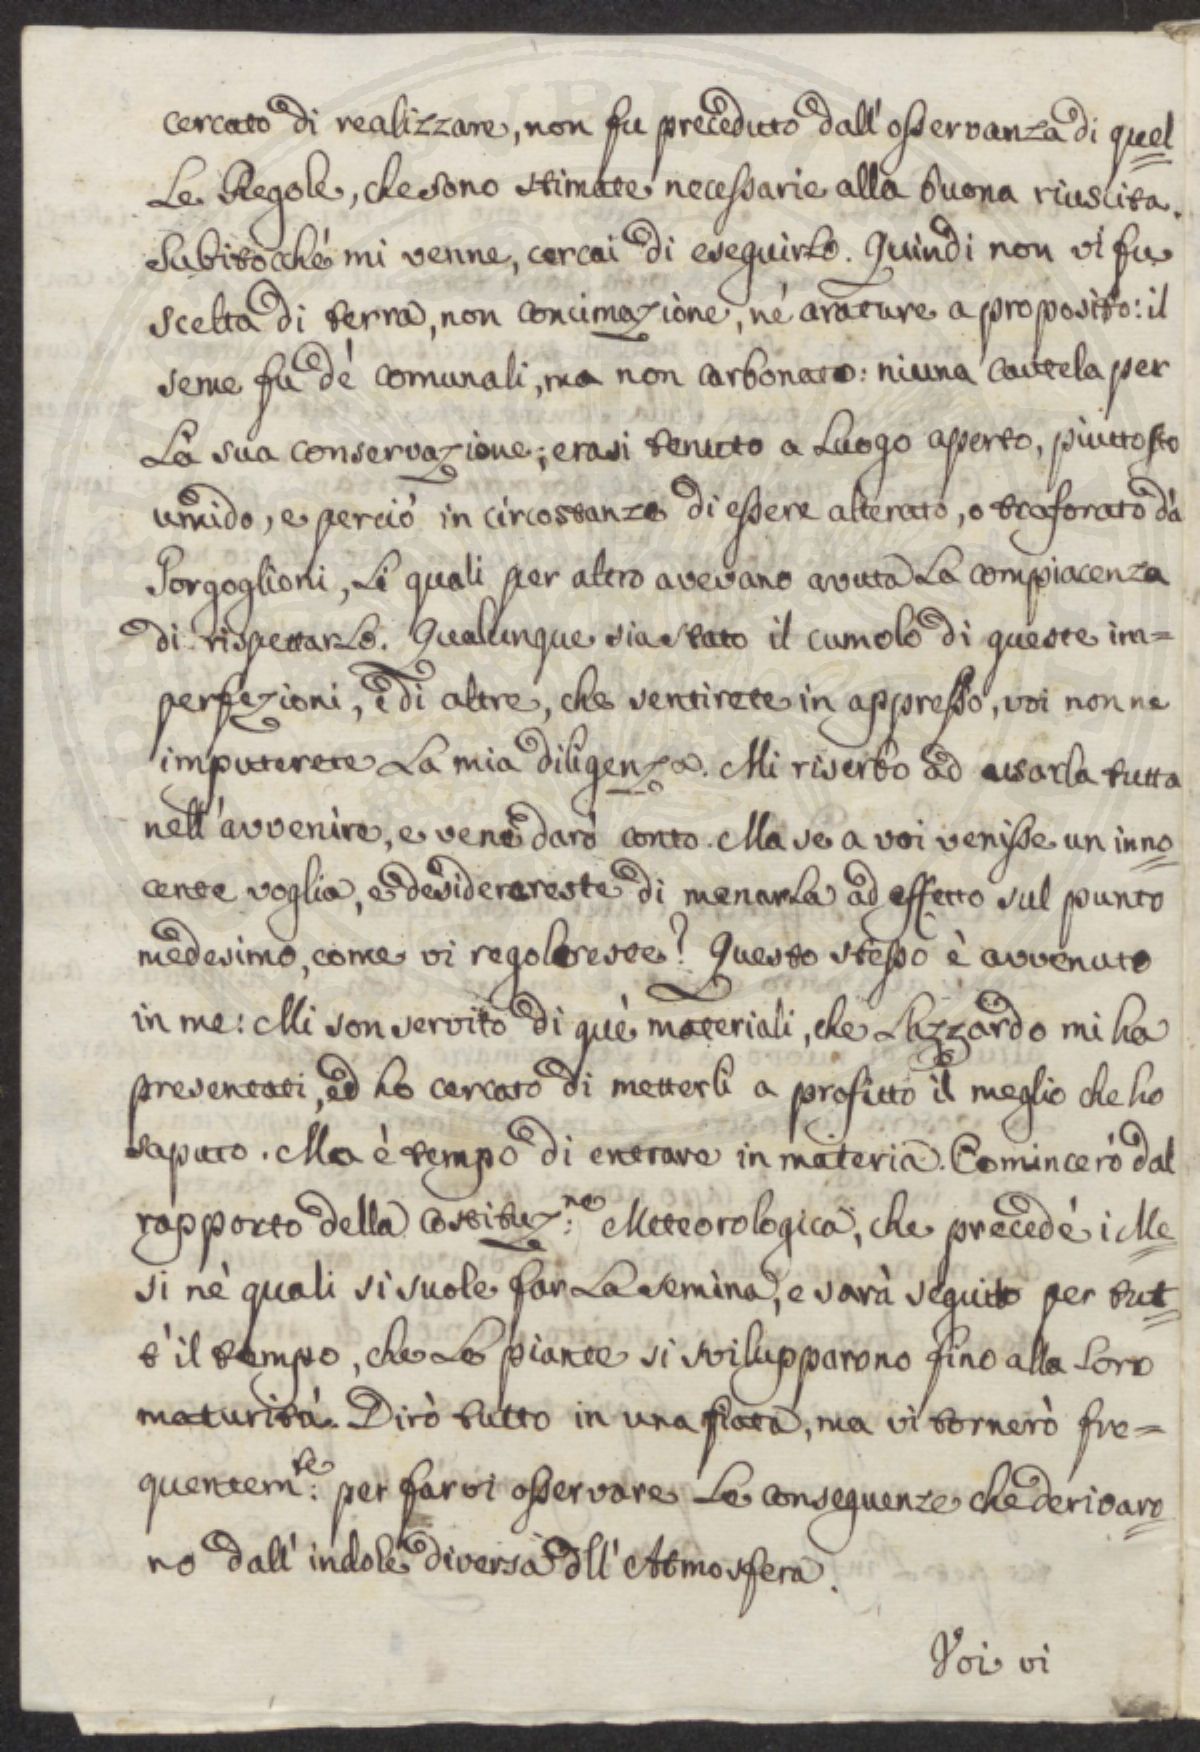 cercato di realizzare, non fu preceduto dall'osservanza di quel
le Regole, che sono stimate necessarie alla buona riuscita.
Subitocché mi venne, cercai di eseguirlo. Quindi non vi fu
scelta di terra, non concimazione, né arature a proposito: il
seme fu de' comunali, ma non carbonato: niuna cautela per
la sua conservazione; erasi tenuto a luogo aperto, piuttosto
umido, e perciò in circostanze di essere alterato, o traforato dà
Gorgoglioni, li quali per altro avevano avuta la compiacenza
di rispettarlo. Qualunque sia stato il cumolo di queste im=
perfezioni, e di altre, che sentirete in appresso, voi non ne
imputerete la mia diligenza. Mi riserbo ad usarla tutta
nell'avvenire, e vene darò conto. Ma se a voi venisse un inno
cente voglia, e desiderareste di menarla ad effetto sul punto
medesimo, come vi regolereste? Questo stesso è avvenuto
in me: Mi son servito di què materiali, che l'azzardo mi ha
presentati, ed ho cercato di metterli a profitto il meglio che ho
saputo. Ma è tempo di entrare in materia. Comincerò dal
rapporto della costituz:ne Meteorologica, che precedé i Me
si nè quali si suole far la semina, e sarà seguito per tut
t'il tempo, che le piante si svilupparono fino alla loro
maturità. Dirò tutto in una fiata, ma vi tornerò fre=
quentem:te per farvi osservare le conseguenze che derivaro
no dall'indole diversa dll'Atmosfera.
Voi vi